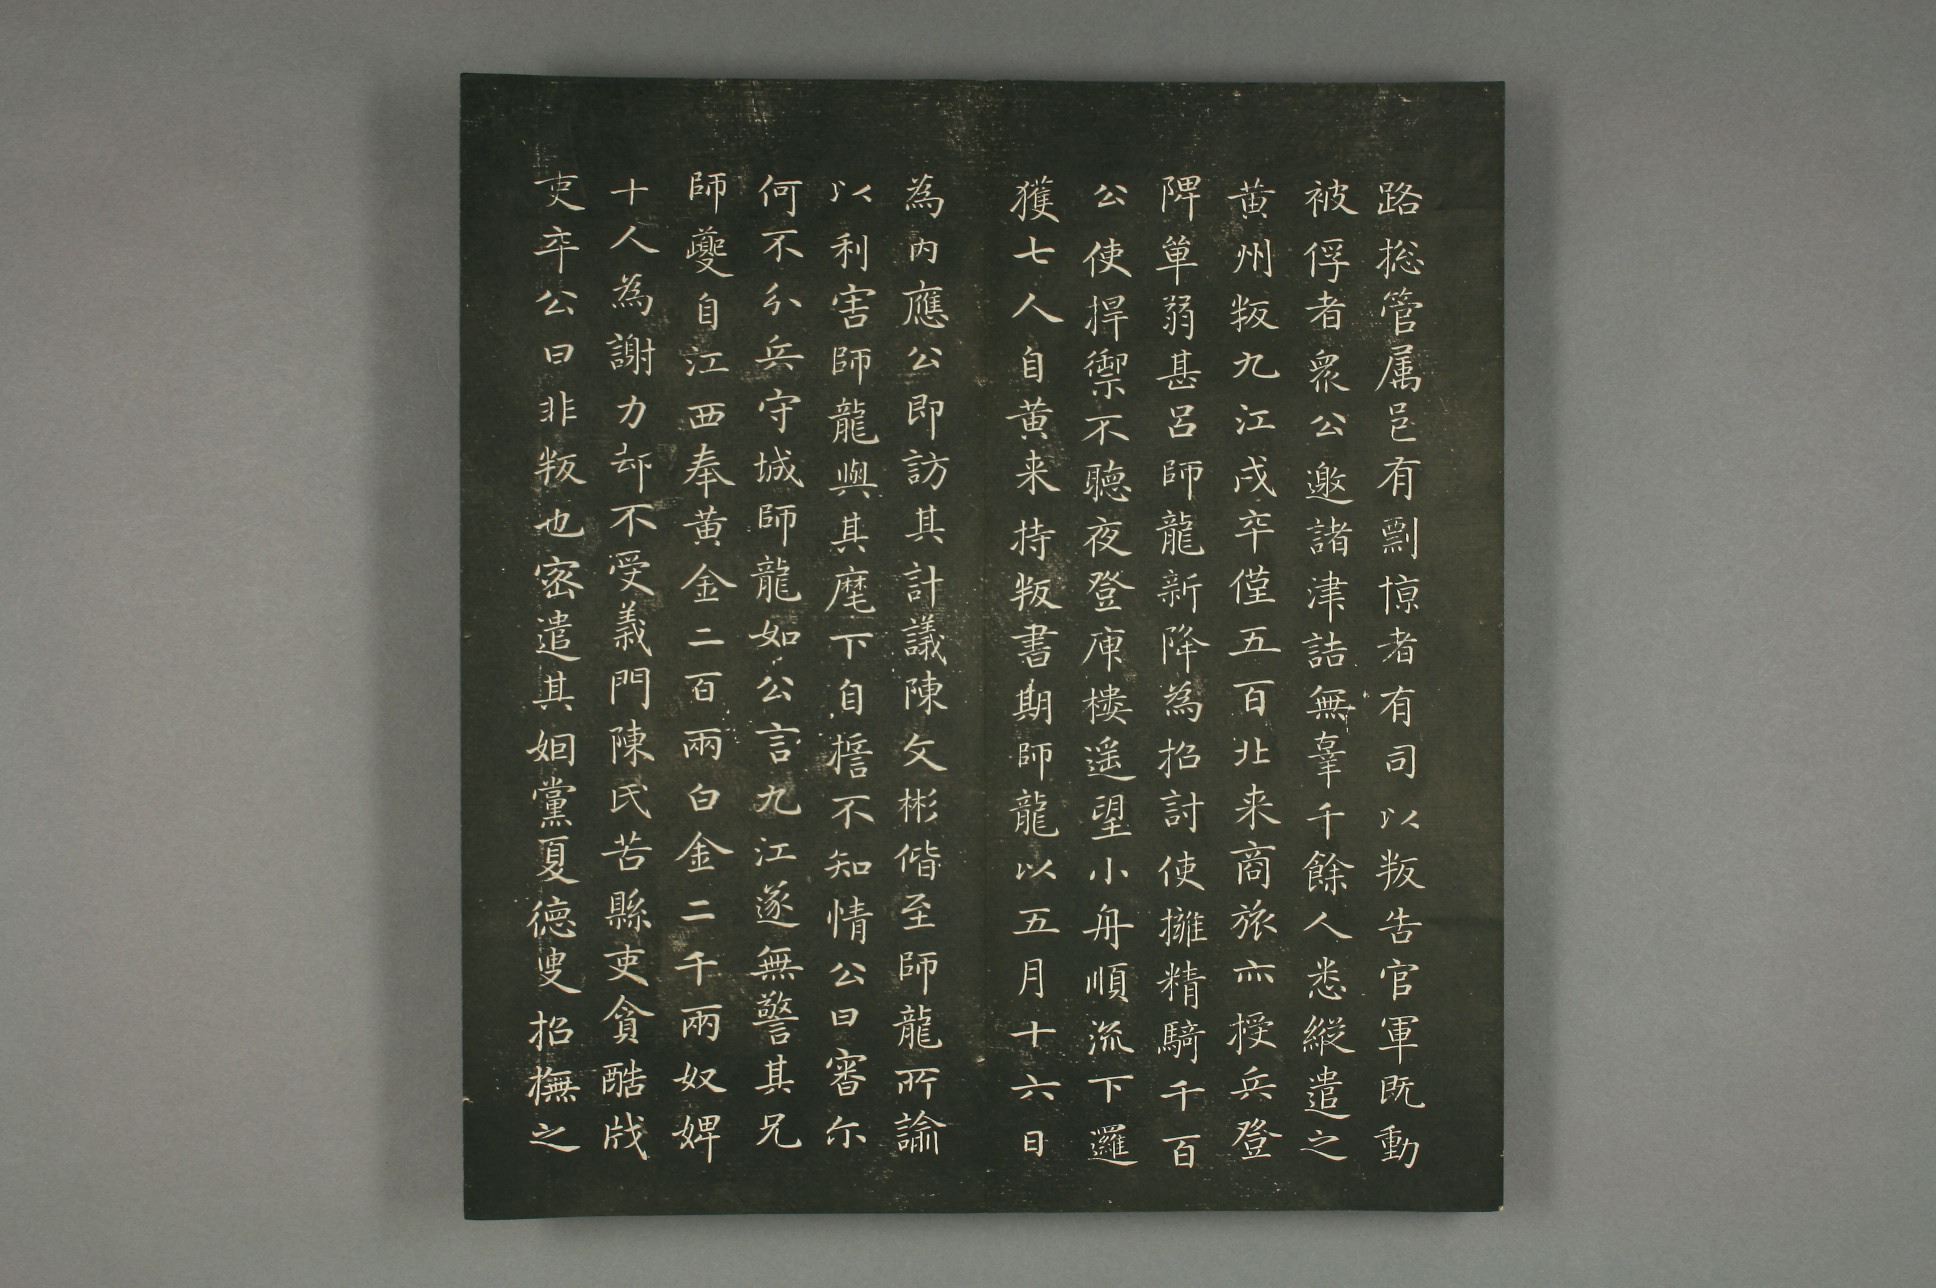 路揔管属邑有剽掠者有司以叛告官軍既動
被俘者衆公邀諸津詰無辜千餘人悉縱遣之
黄州叛九江戍卒僅五百北来商旅亦授兵登
陴單弱甚呂師龍新降為招討使擁精騎千百
公使捍禦不聽夜登庾樓遥望小舟順流下邏
獲七人自黄来持叛書期師龍以五月十六日
為内應公即訪其計議陳文彬偕至師龍所諭
以利害師龍與其麾下自㨮不知情公曰審尓
何不分兵守城師龍如公言九江遂無警其兄
師夔自江西奉黄金二百兩白金二千兩奴婢
十人為謝力却不受義門陳氏苦縣吏貪酷戕
吏卒公曰非叛也密遣其姻黨夏德叟招撫之